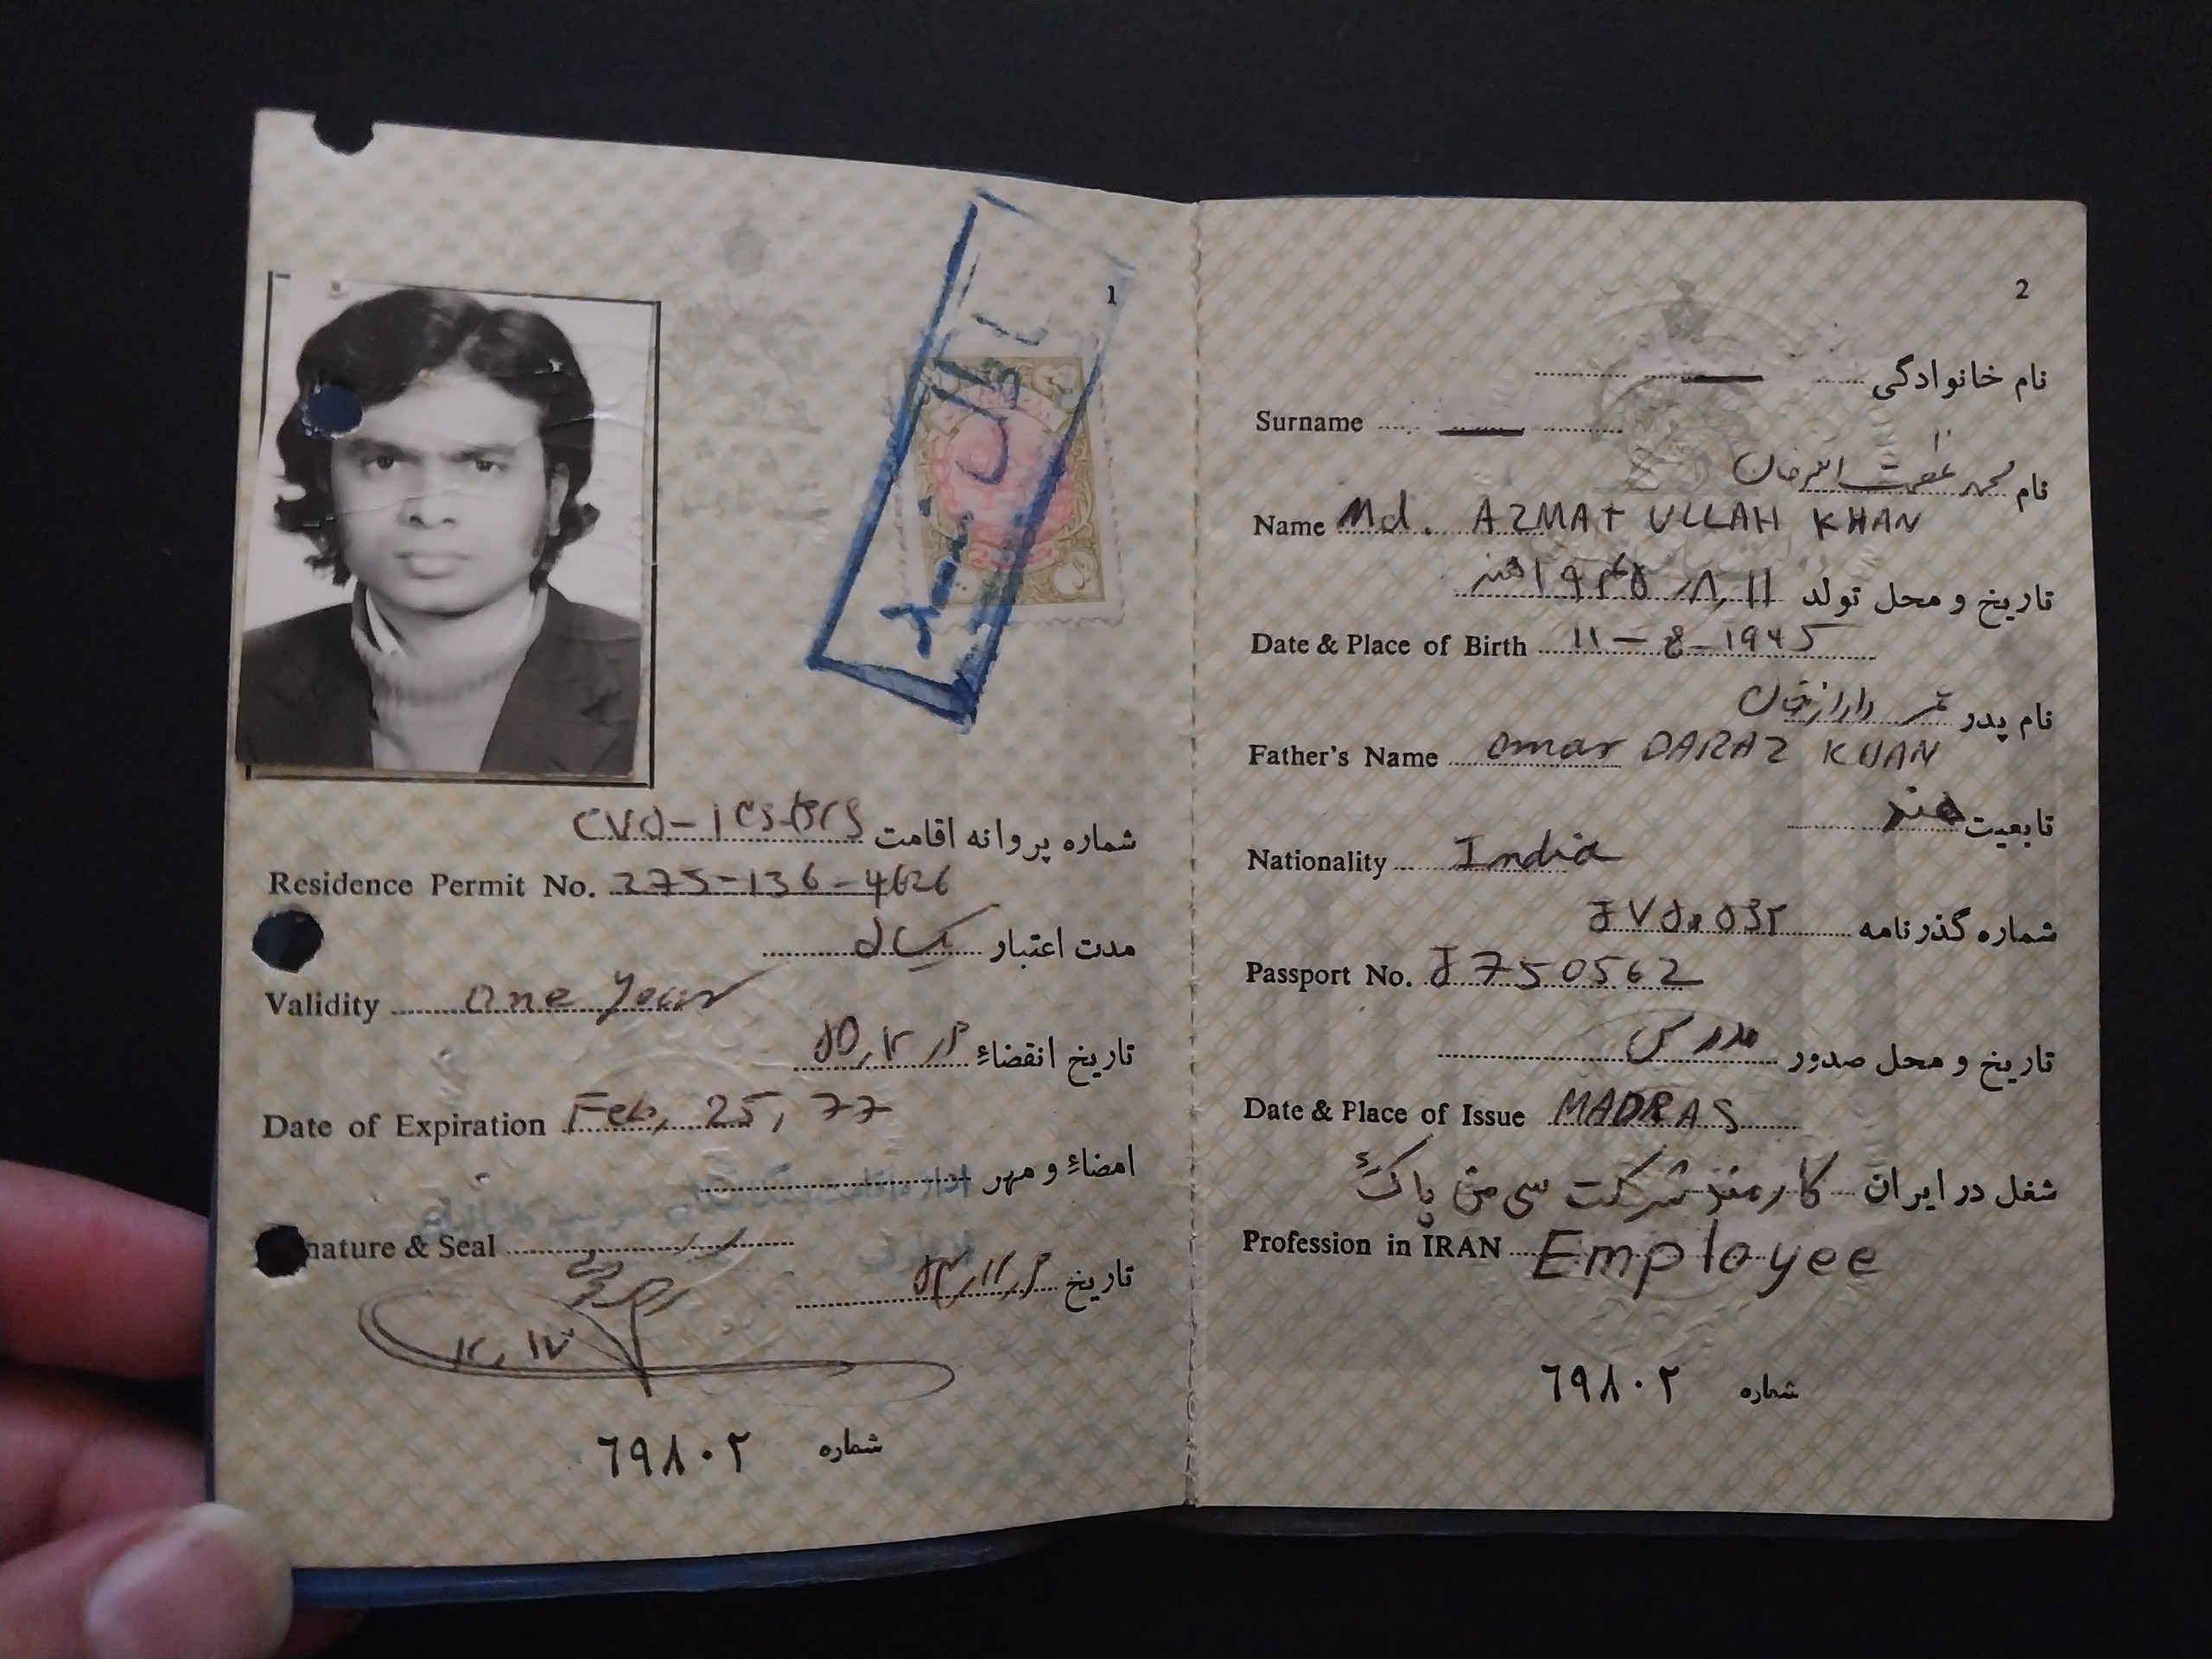 1
شماره پروانه اقامت
Residence Permit No. 275-136-4626
مدت اعتبار یکسال
Validity One Year
تاریخ انقضاءِ ۵۵,۱۲,۶
Date of Expiration Feb, 25, 77
امضاءِ و مهر
nature & Seal
تاریخ ۵۴,۱۲,۶
شماره ٦٩٨٠٢
2
نام خانوادگی —
Surname —
نام محمد عظمت الله خان
Name Md. AZMAT ULLAH KHAN
تاریخ و محل تولد ۱۱,۸,۱۹۴۵ هند
Date & Place of Birth 11-8-1945
نام پدر عمر داراز خان
Father's Name Omar DARAZ KHAN
تابعیت هند
Nationality India
شماره گذرنامه J۷۵۰۵۶۲
Passport No. J750562
تاریخ و محل صدور مدرس
Date & Place of Issue MADRAS
شغل در ایران کارمند شرکت سی من پاک
Profession in IRAN Employee
شماره ٦٩٨٠٢